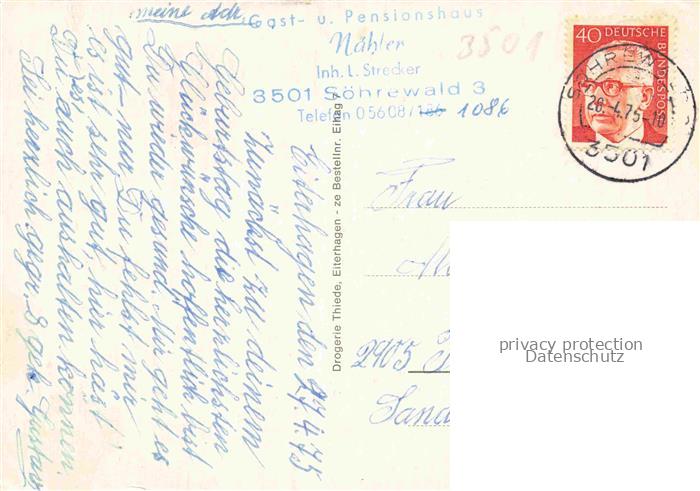 meine Adr.
Gast- u. Pensionshaus
Nähler
Inh. L. Strecker
3501 Söhrewald 3
Telefon 05608/186 1086
3501
40 DEUTSCHE BUNDESPOST
SÖHREWALD
28.-4.75-10
3501
Eiterhagen den 27.4.75
Zunächst zu deinem
Geburtstag die herzlichsten
Glückwünsche hoffentlich bist
Du wieder gesund. Mir geht es
gut - nur Du fehlst mir
es ist sehr gut, hier hast
Du es auch aushalten können.
Sei herzlich gegr. & gek. Gustav
Drogerie Thiede, Eiterhagen - ze Bestellnr. Eihag 7
Frau
2905
Sand
privacy protection
Datenschutz